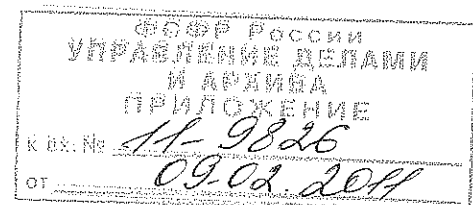 ФСФР России
УПРАВЛЕНИЕ ДЕЛАМИ
И АРХИВА
ПРИЛОЖЕНИЕ
К вх. № 11-9826
от 09.02.2011